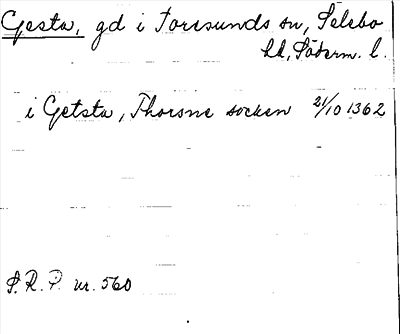 Gesta, gd i Toresunds sn, Selebo
hd, Söderm. l.
i Getsta, Thorsne socken 21/10 1362
S. R. P. nr. 560